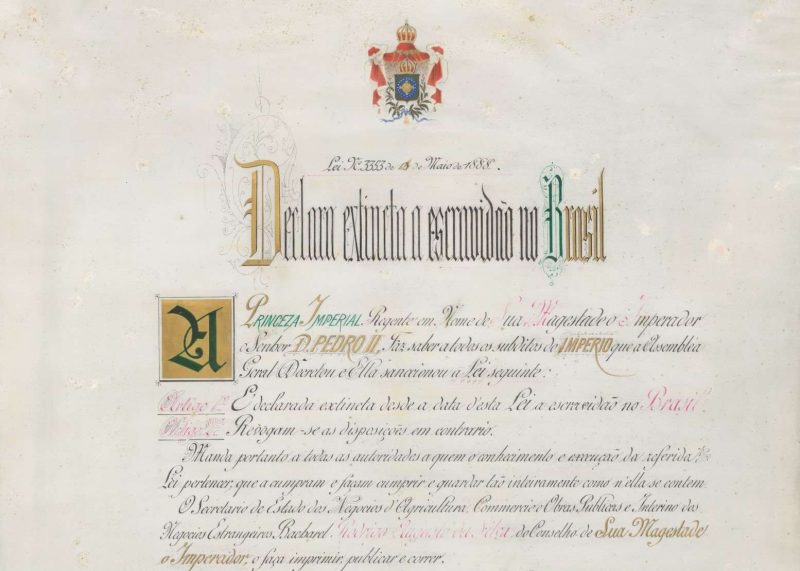 Lei Nº 3353 de 13 de Maio de 1888.
Declara extincta a escravidão no Brasil
A PRINCEZA IMPERIAL Regente em Nome de Sua Magestade o Imperador
o Senhor D. PEDRO II, Faz saber a todos os subditos do IMPERIO que a Assembléa
Geral Decretou e Ella sanccionou a Lei seguinte:
Artigo 1º É declarada extincta desde a data d'esta Lei a escravidão no Brasil.
Artigo 2º Revogam-se as disposições em contrario.
Manda portanto a todas as autoridades a quem o conhecimento e execução da referida
Lei pertencer, que a cumpram e façam cumprir e guardar tão inteiramente como n'ella se contem
O Secretario de Estado dos Negocios d'Agricultura, Commercio e Obras Publicas e Interino dos
Negocios Estrangeiros, Bacharel Rodrigo Augusto da Silva, do Conselho de Sua Magestade
o Imperador, o faça imprimir, publicar e correr.